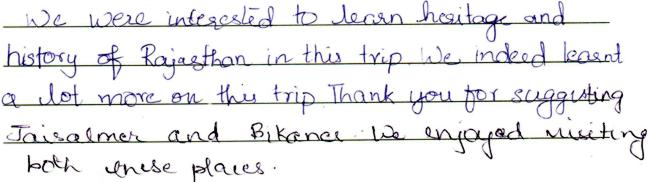 We were interested to learn heritage and
history of Rajasthan in this trip. We indeed learnt
a lot more on this trip Thank you for suggesting
Jaisalmer and Bikaner We enjoyed visiting
both these places.